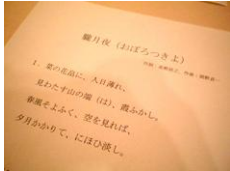 朧月夜（おぼろつきよ）
作詞・高野辰之、作曲・岡野貞一
1．菜の花畠に、入日薄れ、
見わたす山の端（は）、霞ふかし。
春風そよふく、空を見れば、
夕月かかりて、にほひ淡し。